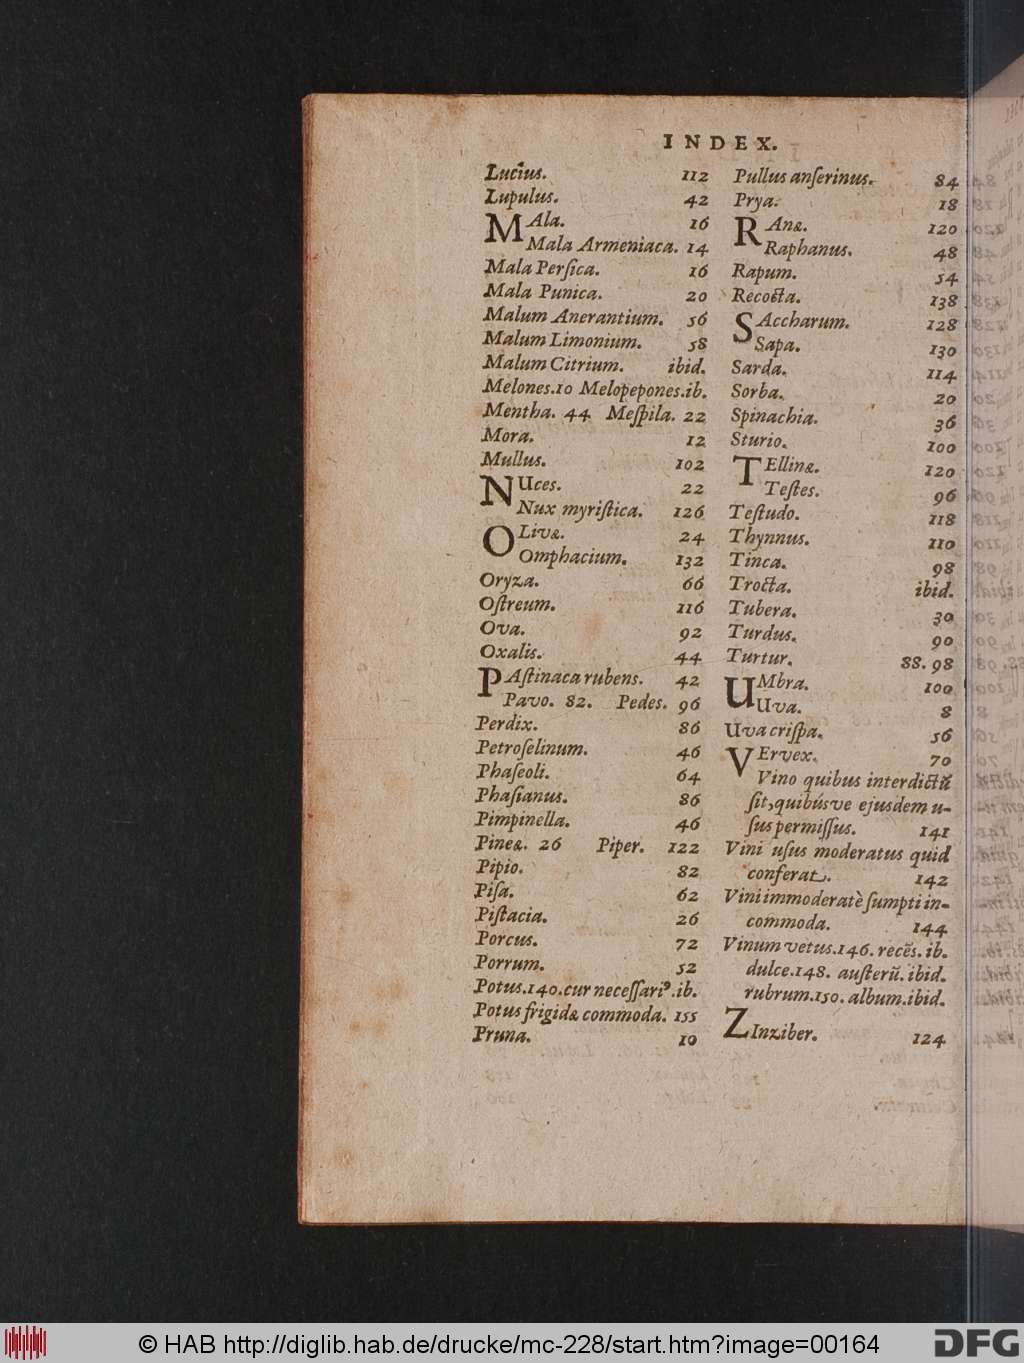 INDEX.
Lucius. 112
Lupulus. 42
MAla. 16
Mala Armeniaca. 14
Mala Perſica. 16
Mala Punica. 20
Malum Anerantium. 56
Malum Limonium. 58
Malum Citrium. ibid.
Melones.10 Melopepones.ib.
Mentha. 44 Meſpila. 22
Mora. 12
Mullus. 102
NUces. 22
Nux myriſtica. 126
OLivæ. 24
Omphacium. 132
Oryza. 66
Oſtreum. 116
Ova. 92
Oxalis. 44
PAſtinaca rubens. 42
Pavo. 82. Pedes. 96
Perdix. 86
Petroſelinum. 46
Phaſeoli. 64
Phaſianus. 86
Pimpinella. 46
Pineæ. 26 Piper. 122
Pipio. 82
Piſa. 62
Piſtacia. 26
Porcus. 72
Porrum. 52
Potus.140.cur neceſſariꝰ.ib.
Potus frigidæ commoda. 155
Pruna. 10
Pullus anſerinus. 84
Prya. 18
RAnæ. 120
Raphanus. 48
Rapum. 54
Recocta. 138
SAccharum. 128
Sapa. 130
Sarda. 114
Sorba. 20
Spinachia. 36
Sturio. 100
TEllinæ. 120
Teſtes. 96
Teſtudo. 118
Thynnus. 110
Tinca. 98
Trocta. ibid.
Tubera. 30
Turdus. 90
Turtur. 88. 98
UMbra. 100
Uva. 8
Uva criſpa. 56
VErvex. 70
Vino quibus interdictũ
ſit, quibúsve ejusdem u-
ſus permiſſus. 141
Vini uſus moderatus quid
conferat. 142
Vini immoderatè ſumpti in-
commoda. 144
Vinum vetus.146. recẽs. ib.
dulce.148. auſterũ. ibid.
rubrum.150. album. ibid.
ZInziber. 124
© HAB http://diglib.hab.de/drucke/mc-228/start.htm?image=00164
DFG